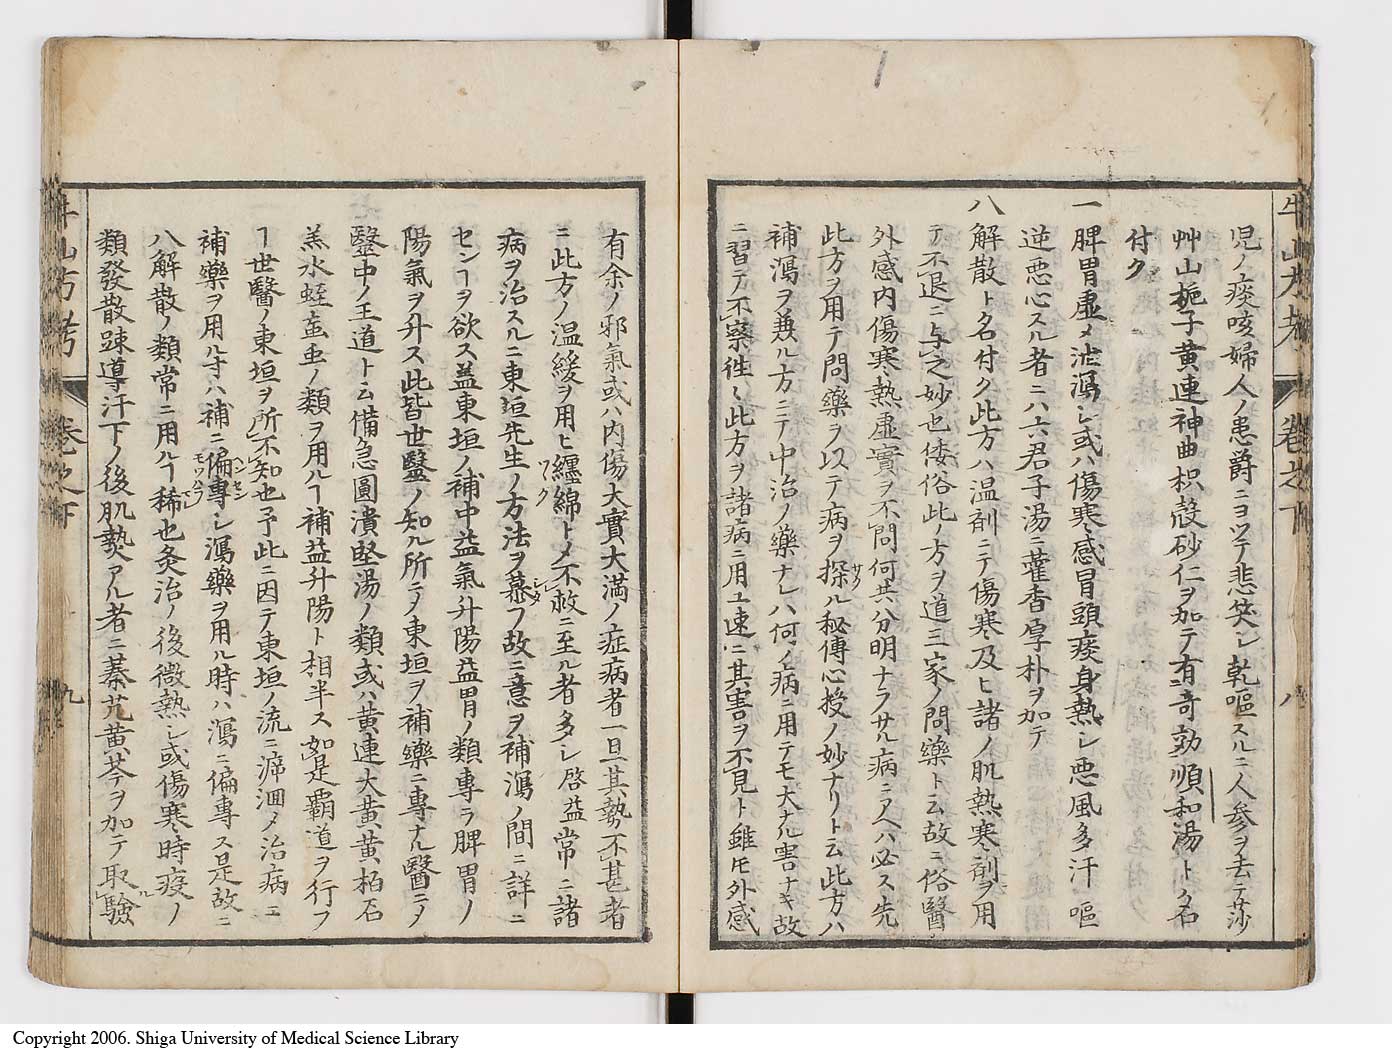 牛山方考 卷之下 八
児ノ痰咳婦人ノ患爵ニヨツテ悲笑シ乾嘔スルニ人参ヲ去テ莎
艸山梔子黄連神曲枳殻砂仁ヲ加テ有奇効順和湯トク名
付ク
一 脾胃虚メ泄瀉シ或ハ傷寒感冒頭疼身熱シ悪風多汗嘔
逆悪心スル者ニハ六君子湯ニ藿香厚朴ヲ加テ
八解散ト名付ク此方ハ温剤ニテ傷寒及ヒ諸ノ肌熱寒剤ヲ用
テ不退ニ与之妙也倭俗此方ヲ道三家ノ問藥ト云故ニ俗醫
外感内傷寒熱虚實ヲ不問何共分明ナラサル病ニアヘハ必ス先
此方ヲ用テ問藥ヲ以テ病ヲ探ル秘傳心授ノ妙ナリト云此方ハ
補瀉ヲ兼ル方ニテ中治ノ藥ナレハ何ノ病ニ用テモ大ナル害ナキ故
ニ習テ不察徃〻此方ヲ諸病ニ用ユ速ニ其害ヲ不見ト雖モ外感
有余ノ邪氣或ハ内傷大實大満ノ症病者一旦其勢不甚者
ニ此方ノ温緩ヲ用ヒ纏綿トメ不救ニ至ル者多シ啓益常ニ諸
病ヲ治スルニ東垣先生ノ方法ヲ慕フ故ニ意ヲ補瀉ノ間ニ詳ニ
センヿヲ欲ス蓋東垣ノ補中益氣升陽益胃ノ類專ラ脾胃ノ
陽氣ヲ升ス此皆世醫ノ知ル所ニメ東垣ヲ補藥ニ專ナル醫ニメ
醫中ノ王道ト云備急圓潰堅湯ノ類或ハ黄連大黄黄柏石
羔水蛭䖟虫ノ類ヲ用ルヿ補益升陽ト相半ス如是覇道ヲ行フ
ヿ世醫ノ東垣ヲ所不知也予此ニ因テ東垣ノ流ニ㴑洄メ治病ニ
補藥ヲ用ル寸ハ補ニ偏專シ瀉藥ヲ用ル時ハ瀉ニ偏專ス是故ニ
八解散ノ類常ニ用ルヿ稀也灸治ノ後微熱シ或傷寒時疫ノ
類發散踈導汗下ノ後肌熱アル者ニ蓁艽黄芩ヲ加テ取驗
牛山方考 卷之下 九
Copyright 2006. Shiga University of Medical Science Library